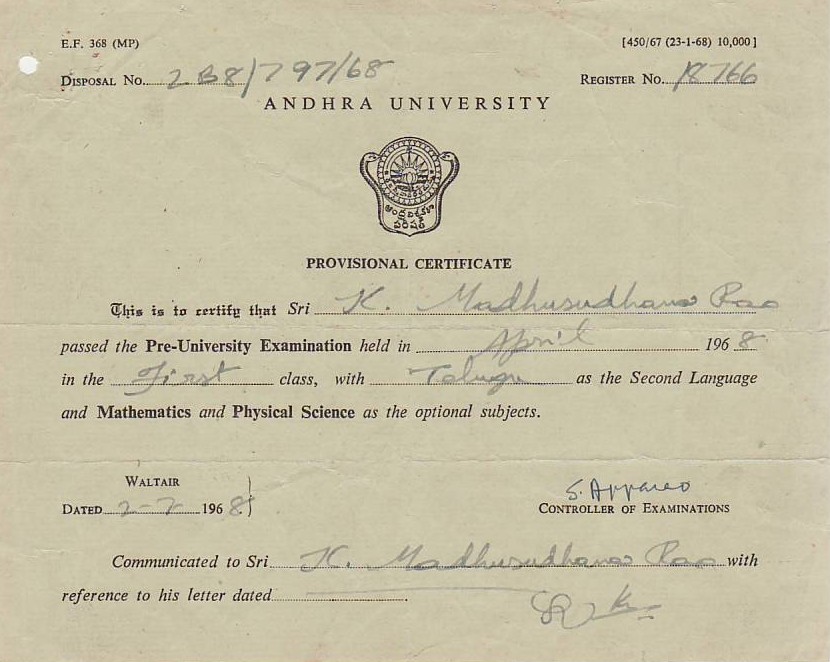 E.F. 368 (MP) [450/67 (23-1-68) 10,000]
DISPOSAL NO. 2B8/797/68 REGISTER NO. 18766
ANDHRA UNIVERSITY
PROVISIONAL CERTIFICATE
This is to certify that Sri K. Madhusudhana Rao
passed the Pre-University Examination held in April 1968
in the First class, with Telugu as the Second Language
and Mathematics and Physical Science as the optional subjects.
WALTAIR
DATED 2-7 1968 S. Apparao
CONTROLLER OF EXAMINATIONS
Communicated to Sri K. Madhusudhana Rao with
reference to his letter dated